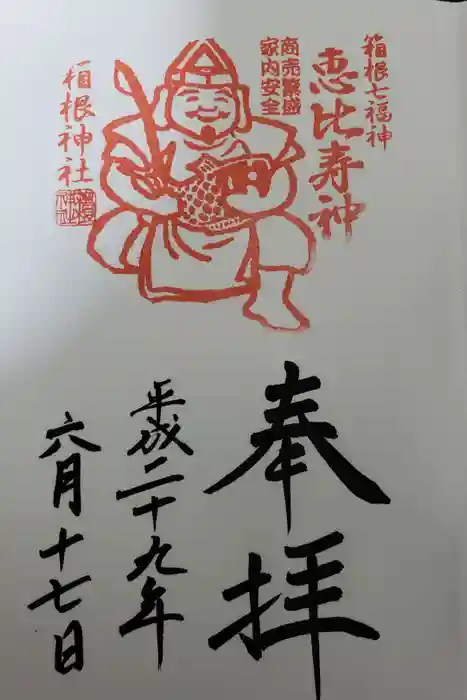 箱根七福神
恵比寿神
商売繁盛
家内安全
箱根神社
奉拝
平成二十九年
六月十七日